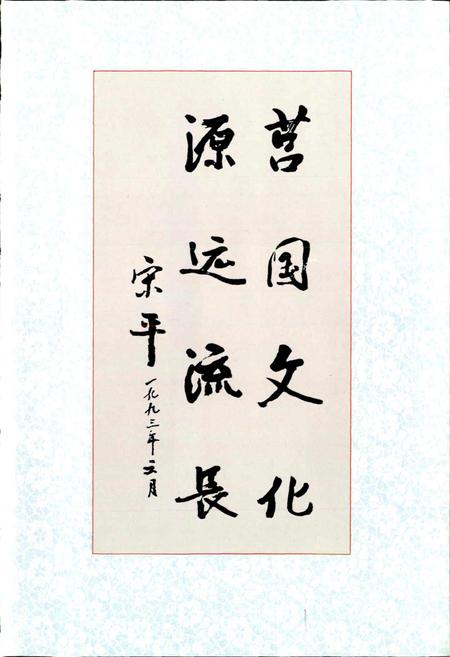 莒国文化
源远流长
宋平
一九九三年五月